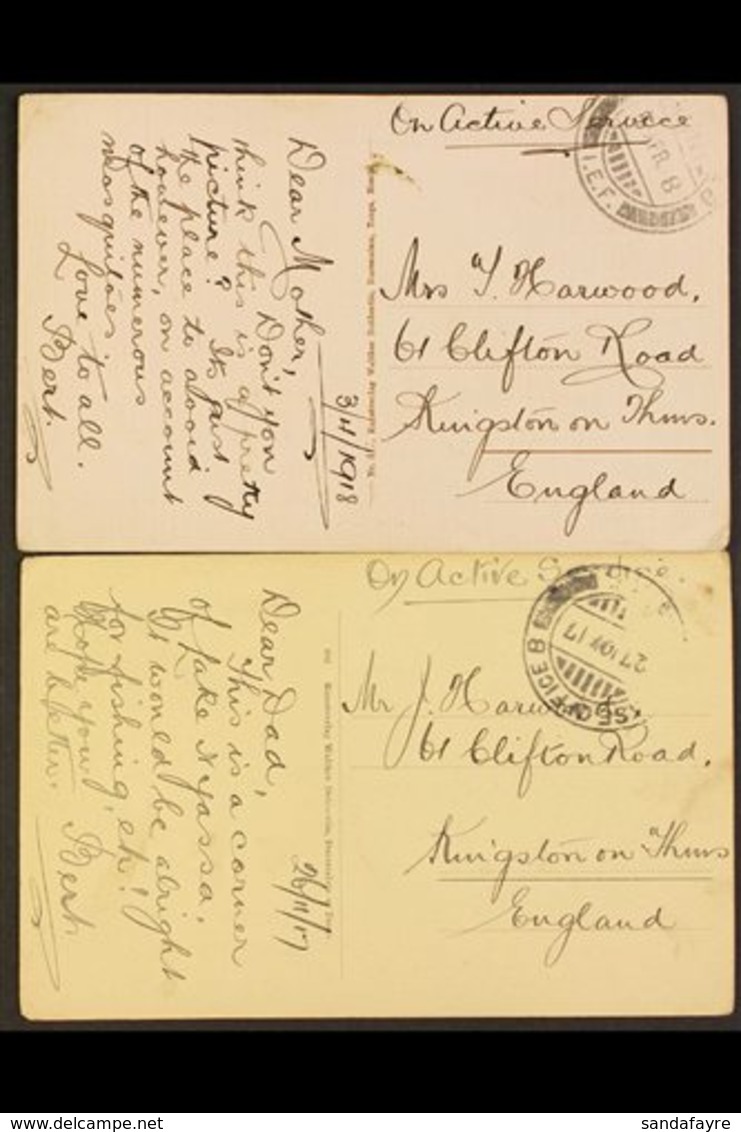 On Active Service
I.E.F.
Mrs T. Harwood,
61 Clifton Road
Kingston on Thms.
England
3/4/1918
Dear Mother,
Don't you
think this is a pretty
picture? Its just
the place to avoid
however, on account
of the numerous
mosquitoes
Love to all.
Bert.
On Active Service.
27 NOV 17
SE OFFICE 8
Mr J. Harwood,
61 Clifton Road,
Kingston on Thms
England
26/11/17
Dear Dad,
This is a corner
of Lake Nyassa.
It would be alright
for fishing, eh!
Hope you
are better. Bert.
delcampe.net
sandafayre